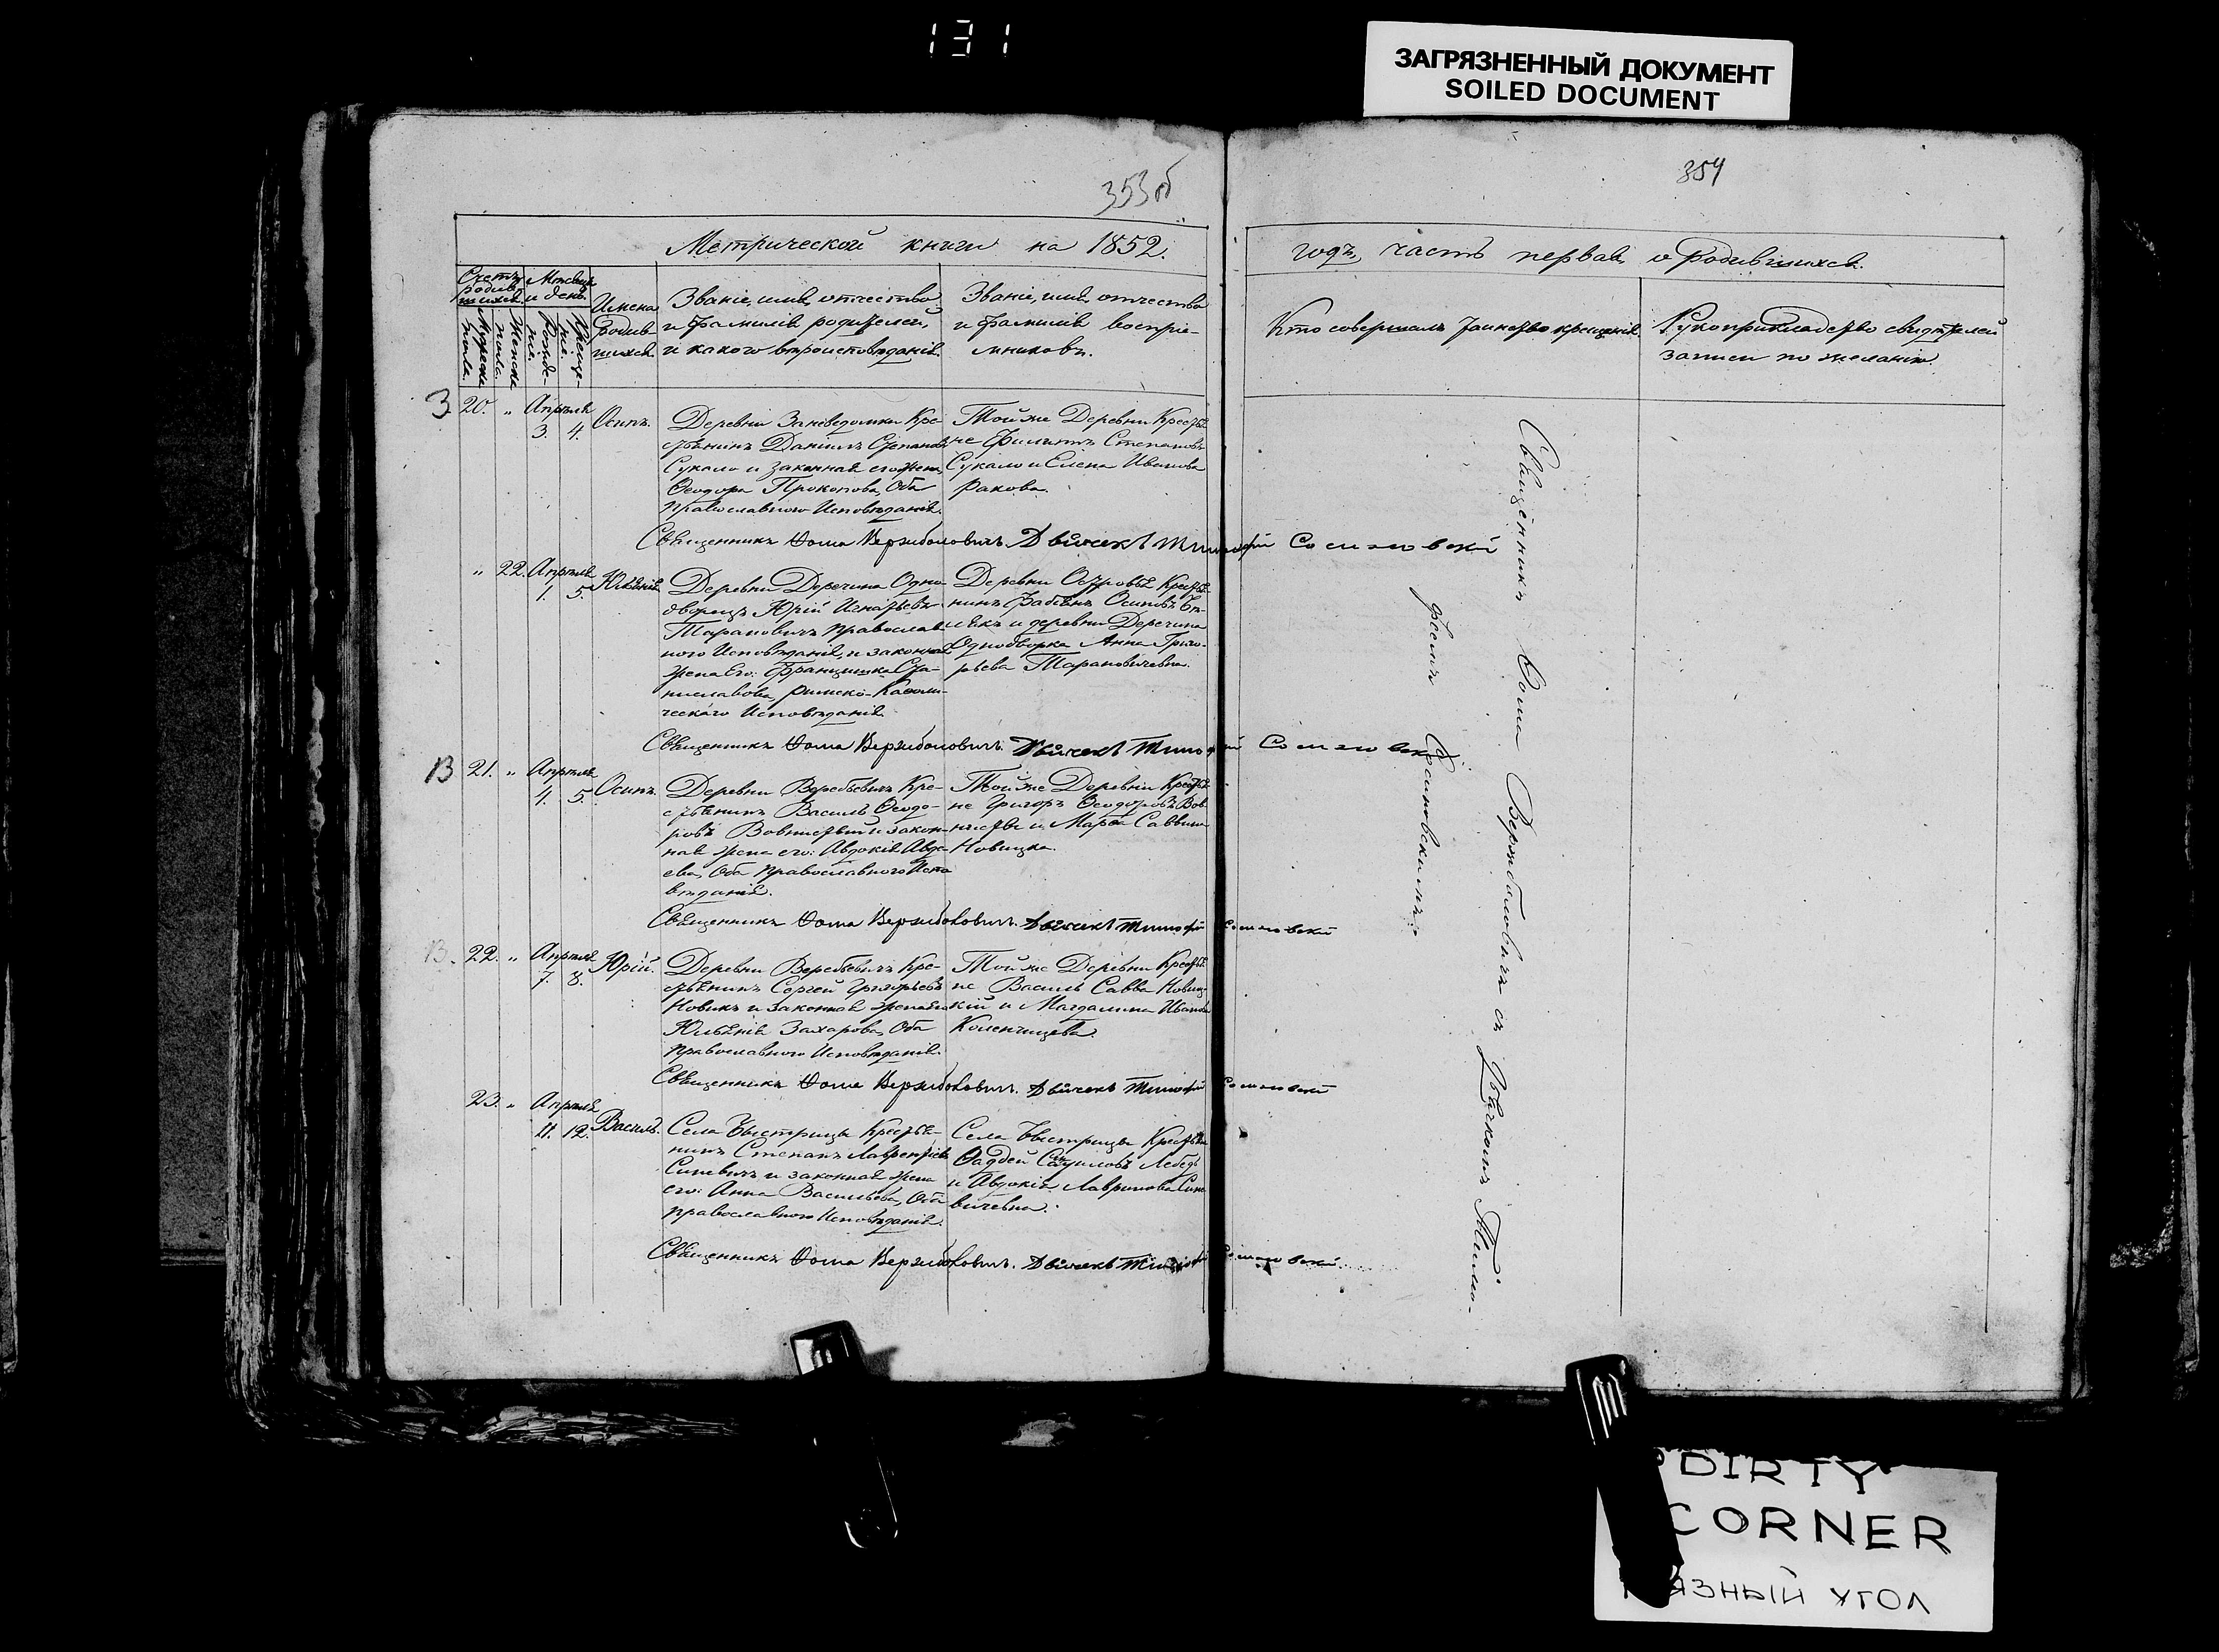 131
ЗАГРЯЗНЕННЫЙ ДОКУМЕНТ
SOILED DOCUMENT
353об
354
Метрической книги на 1852.
годъ, часть первая о родившихся.
Счетъ родив-шихся.
Мужеска пола.
Женска пола.
Мѣсяцъ и день.
Рожде-нія.
Креще-нія.
Имена родив-шихся.
Званіе, имя, отчество
и фамилія родителей,
и какого вѣроисповѣданія.
Званіе, имя, отчество
и фамилія воспріе-
мниковъ.
Кто совершалъ таинство крещенія.
Рукоприкладство свидѣтелей
записи по желанію.
3 20. „ Апрѣля 3. 4. Осипъ.
Деревни Заневедомки Кре-
стьянинъ Даніилъ Степановъ
Сукало и законная его жена,
Ѳеодора Прокопова, Оба
православного Исповѣданія.
Той же Деревни Крестья
не Филиппъ Степановъ
Сукало и Елена Иванова
Ракова.
Священникъ Ѳома Вержболовичъ. Дьячекъ Тимофей Сосиновскій
„ 22. Апрѣля 1. 5. Юліянія
Деревни Деречина Одно-
дворецъ Юрій Игнатьевъ
Тарановичъ православ
ного Исповѣданія, и законная
жена Его: Францишка Ста-
ниславова, римско-Католи-
ческаго Исповѣданія
Деревни Островья Крестья
нинъ Фабіянъ Осиповъ
и деревни Деречина
Однодворка Анна Григо-
рьева Тарановичевна.
Священникъ Ѳома Вержболовичъ. Дьячекъ Тимофей Сосиновскій
В 21. „ Апрѣля 4. 5. Осипъ.
Деревни Веребьевичъ Кре-
стьянинъ Василь Ѳеодо-
ровъ и закон-
ная жена его: Авдокія Авде
ева, Оба православного Испо
вѣданія.
Той же Деревни Крестья
не Григоръ Ѳеодоровъ
и Марѳа Саввина
Новицка.
Священникъ Ѳома Вержболовичъ. Дьячекъ Тимофей Сосиновскій
В. 22. „ Апрѣля 7. 8. Юрій.
Деревни Веребьевичъ Кре-
стьянинъ Сергей Григорьевъ
Новикъ и законная жена Его
Юліянія Захарова, Оба
православного Исповѣданія.
Той же Деревни Крестья
не Василь Савва Новиц
кій и Магдалина Иванова
Коленчицева.
Священникъ Ѳома Вержболовичъ. Дьячекъ Тимофей Сосиновскій
23. „ Апрѣля 11. 12. Василь.
Села Быстрицы Крестья-
нинъ Степанъ Лаврентіевъ
Синевичъ и законная жена
его: Анна Васильева, Оба
православного Исповѣданія.
Села Быстрицы Крестьяне
Ѳаддей Лебедь
и Авдокія Лавринова Сине
вичевна.
Священникъ Ѳома Вержболовичъ. Дьячекъ Тимофей Сосиновскій
Священникъ Ѳома Вержболовичъ съ Дьячкомъ Тимо-
феемъ Сосиновскимъ.
DIRTY
CORNER
ЯЗНЫЙ УГОЛ